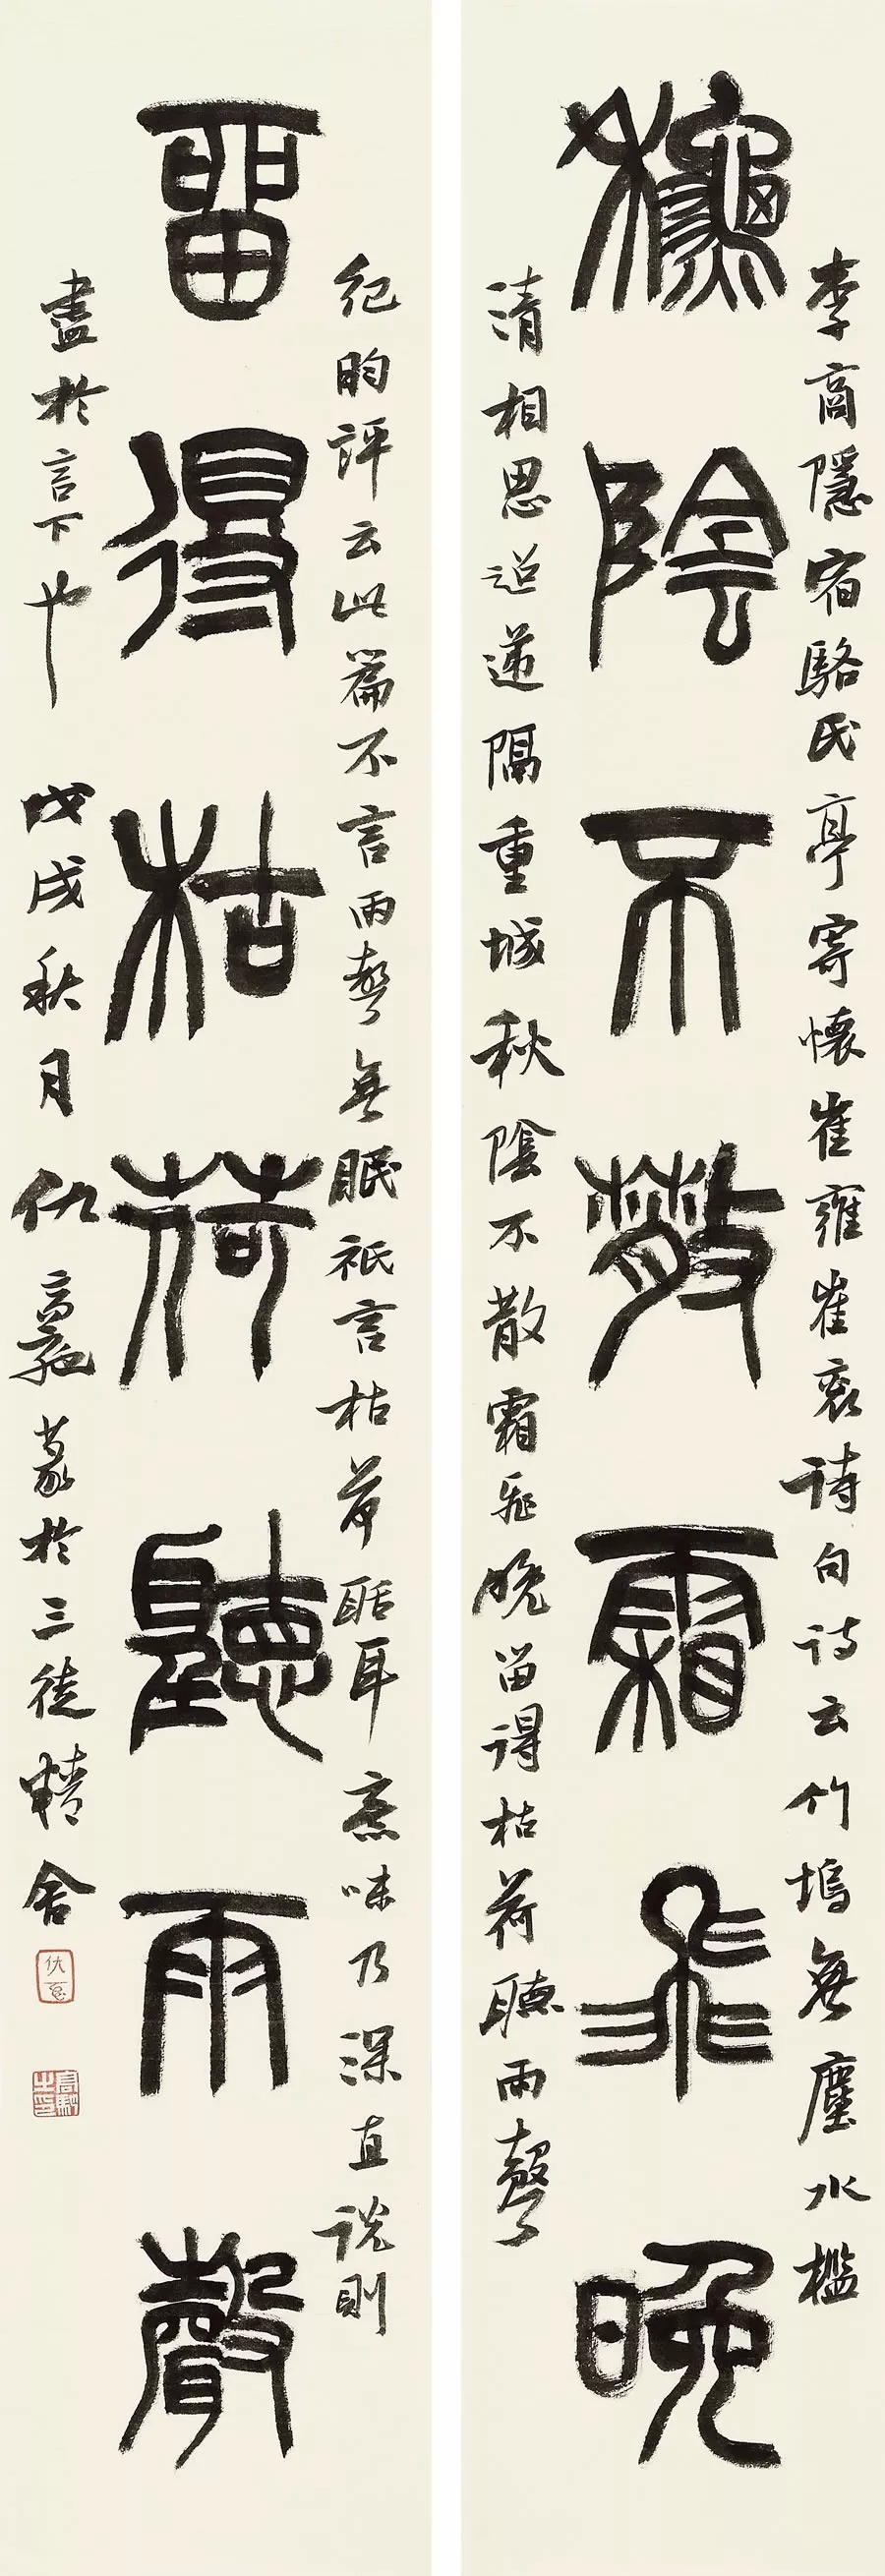 李商隱宿駱氏亭寄懷崔雍崔袞詩句詩云竹塢無塵水檻
秋陰不散霜飛晚
清相思迢遞隔重城秋陰不散霜飛晚留得枯荷聽雨聲
紀昀評云此篇不言雨聲無眠祇言枯荷聒耳意味乃深直說則
留得枯荷聽雨聲
盡於言下也 戊戌秋月仇高馳篆於三徒精舍